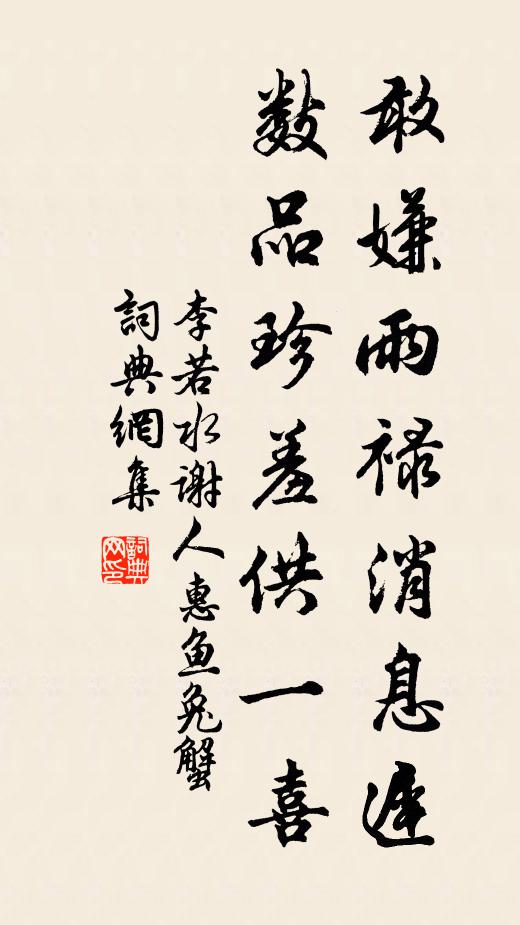 敢嫌雨禄消息遲
数品珍羞供一喜
李若水谢人惠鱼兔蟹
詞典網集
詞典网印